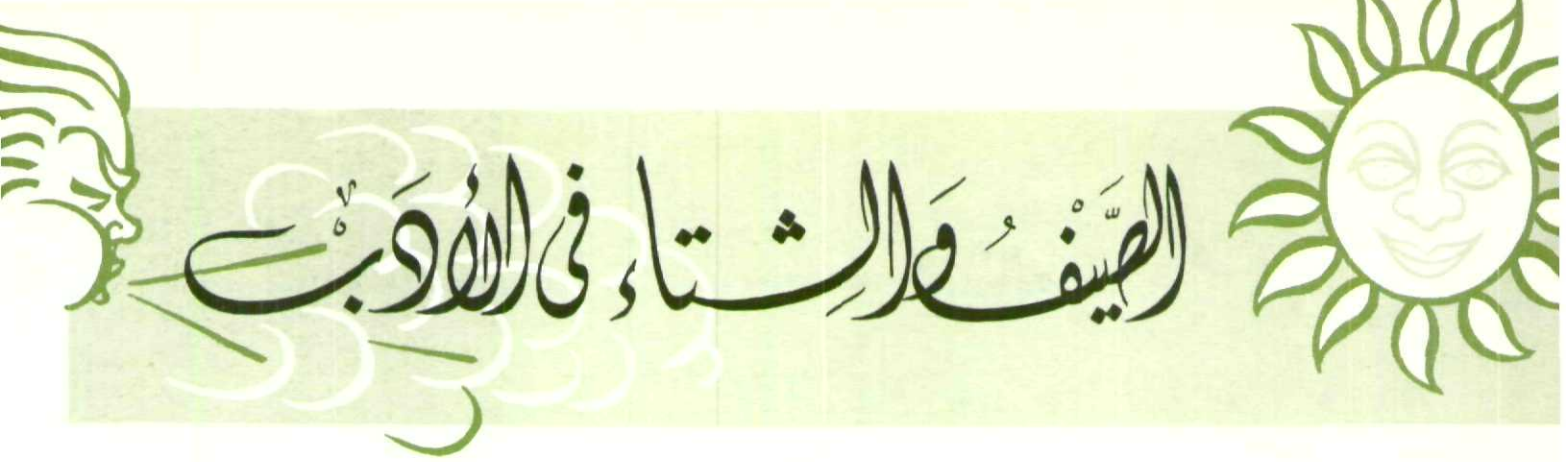 الصَّيْفُ وَالشِتاء فى الأدَبْ